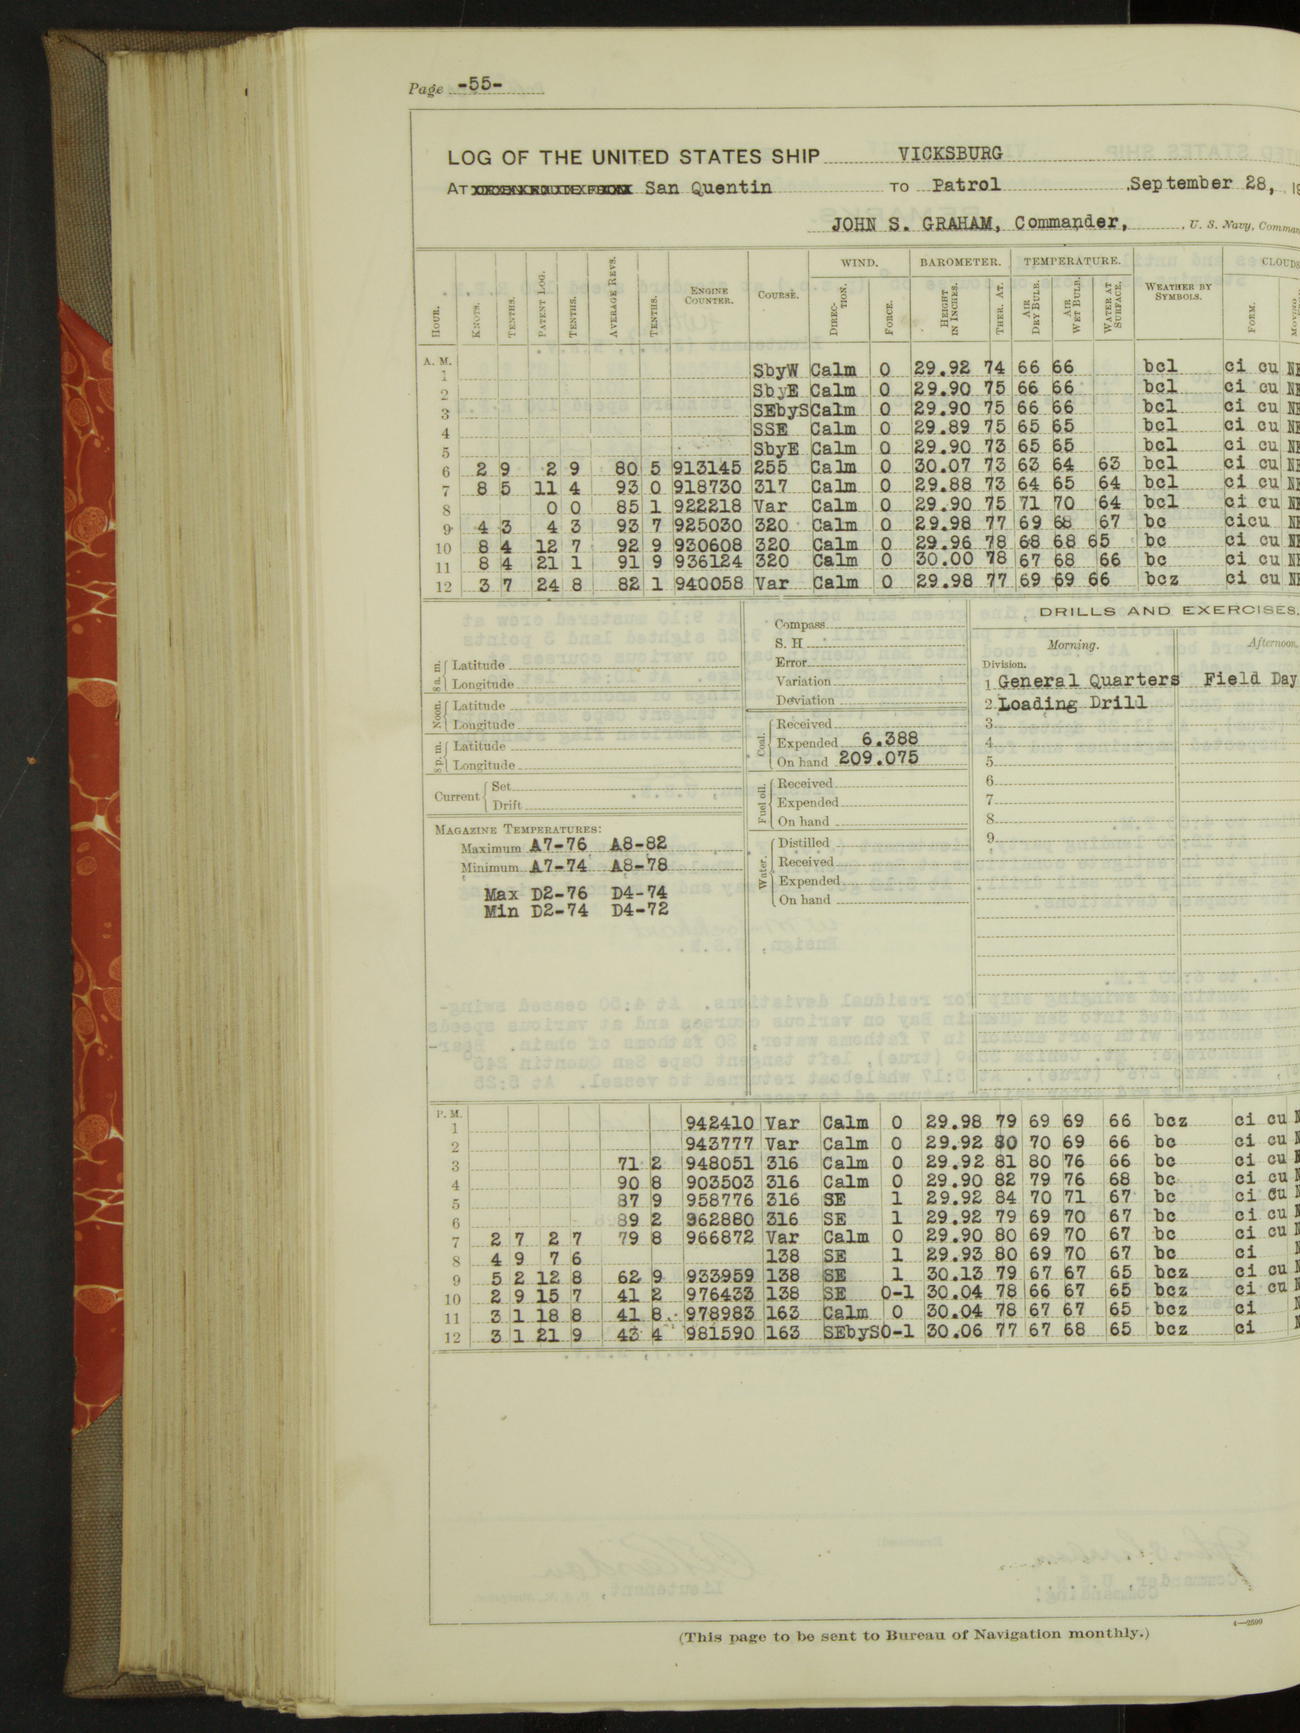 Page -55-
LOG OF THE UNITED STATES SHIP VICKSBURG
AT San Quentin TO Patrol September 28, 19
JOHN S. GRAHAM, Commander, U. S. Navy, Comman
WIND. BAROMETER. TEMPERATURE. CLOUDS
HOUR. KNOTS. TENTHS. PATENT LOG. TENTHS. AVERAGE REVS. TENTHS. ENGINE COUNTER. COURSE. DIRECTION. FORCE. HEIGHT IN INCHES. THER. AT. AIR DRY BULB. AIR WET BULB. WATER AT SURFACE. WEATHER BY SYMBOLS. FORM. MOVING
A. M.
1 SbyW Calm 0 29.92 74 66 66 bcl ci cu N
2 SbyE Calm 0 29.90 75 66 66 bcl ci cu N
3 SEbyS Calm 0 29.90 75 66 66 bcl ci cu N
4 SSE Calm 0 29.89 75 65 65 bcl ci cu N
5 SbyE Calm 0 29.90 73 65 65 bcl ci cu N
6 2 9 2 9 80 5 913145 255 Calm 0 30.07 73 63 64 63 bcl ci cu N
7 8 5 11 4 93 0 918730 317 Calm 0 29.88 73 64 65 64 bcl ci cu N
8 0 0 85 1 922218 Var Calm 0 29.90 75 71 70 64 bcl ci cu N
9 4 3 4 3 93 7 925030 320 Calm 0 29.98 77 69 68 67 bc cicu N
10 8 4 12 7 92 9 930608 320 Calm 0 29.96 78 68 68 65 bc ci cu N
11 8 4 21 1 91 9 936124 320 Calm 0 30.00 78 67 68 66 bc ci cu N
12 3 7 24 8 82 1 940058 Var Calm 0 29.98 77 69 69 66 bcz ci cu N
8 a. m. Latitude
Longitude
Noon. Latitude
Longitude
8 p. m. Latitude
Longitude
Current Set
Drift
MAGAZINE TEMPERATURES:
Maximum A7-76 A8-82
Minimum A7-74 A8-78
Max D2-76 D4-74
Min D2-74 D4-72
Compass
S. H
Error
Variation
Deviation
Coal. Received
Expended 6.388
On hand 209.075
Fuel oil. Received
Expended
On hand
Water. Distilled
Received
Expended
On hand
DRILLS AND EXERCISES.
Morning. Afternoon.
Division.
1 General Quarters Field Day
2 Loading Drill
3
4
5
6
7
8
9
P. M.
1 942410 Var Calm 0 29.98 79 69 69 66 bcz ci cu N
2 943777 Var Calm 0 29.92 80 70 69 66 bc ci cu N
3 71 2 948051 316 Calm 0 29.92 81 80 76 66 bc ci cu N
4 90 8 903503 316 Calm 0 29.90 82 79 76 68 bc ci cu N
5 87 9 958776 316 SE 1 29.92 84 70 71 67 bc ci cu N
6 89 2 962880 316 SE 1 29.92 79 69 70 67 bc ci cu N
7 2 7 2 7 79 8 966872 Var Calm 0 29.90 80 69 70 67 bc ci cu N
8 4 9 7 6 138 SE 1 29.93 80 69 70 67 bc ci N
9 5 2 12 8 62 9 933959 138 SE 1 30.13 79 67 67 65 bcz ci cu N
10 2 9 15 7 41 2 976433 138 SE 0-1 30.04 78 66 67 65 bcz ci cu N
11 3 1 18 8 41 8 978983 163 Calm 0 30.04 78 67 67 65 bcz ci N
12 3 1 21 9 43 4 981590 163 SEbyS 0-1 30.06 77 67 68 65 bcz ci N
(This page to be sent to Bureau of Navigation monthly.)